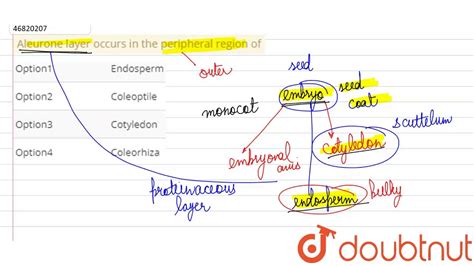 46820207
Aleurone layer occurs in the peripheral region of
Option1 Endosperm
Option2 Coleoptile
Option3 Cotyledon
Option4 Coleorhiza
outer
seed
monocot
embryo
seed
coat
scuttelum
cotyledon
embryonal
axis
proteinaceous
layer
endosperm
bulky
doubtnut